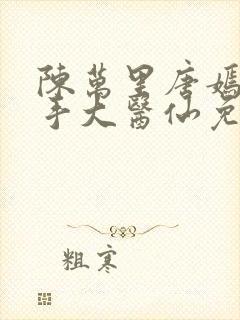 陳萬里唐嫣
手大醫仙免
粗寒